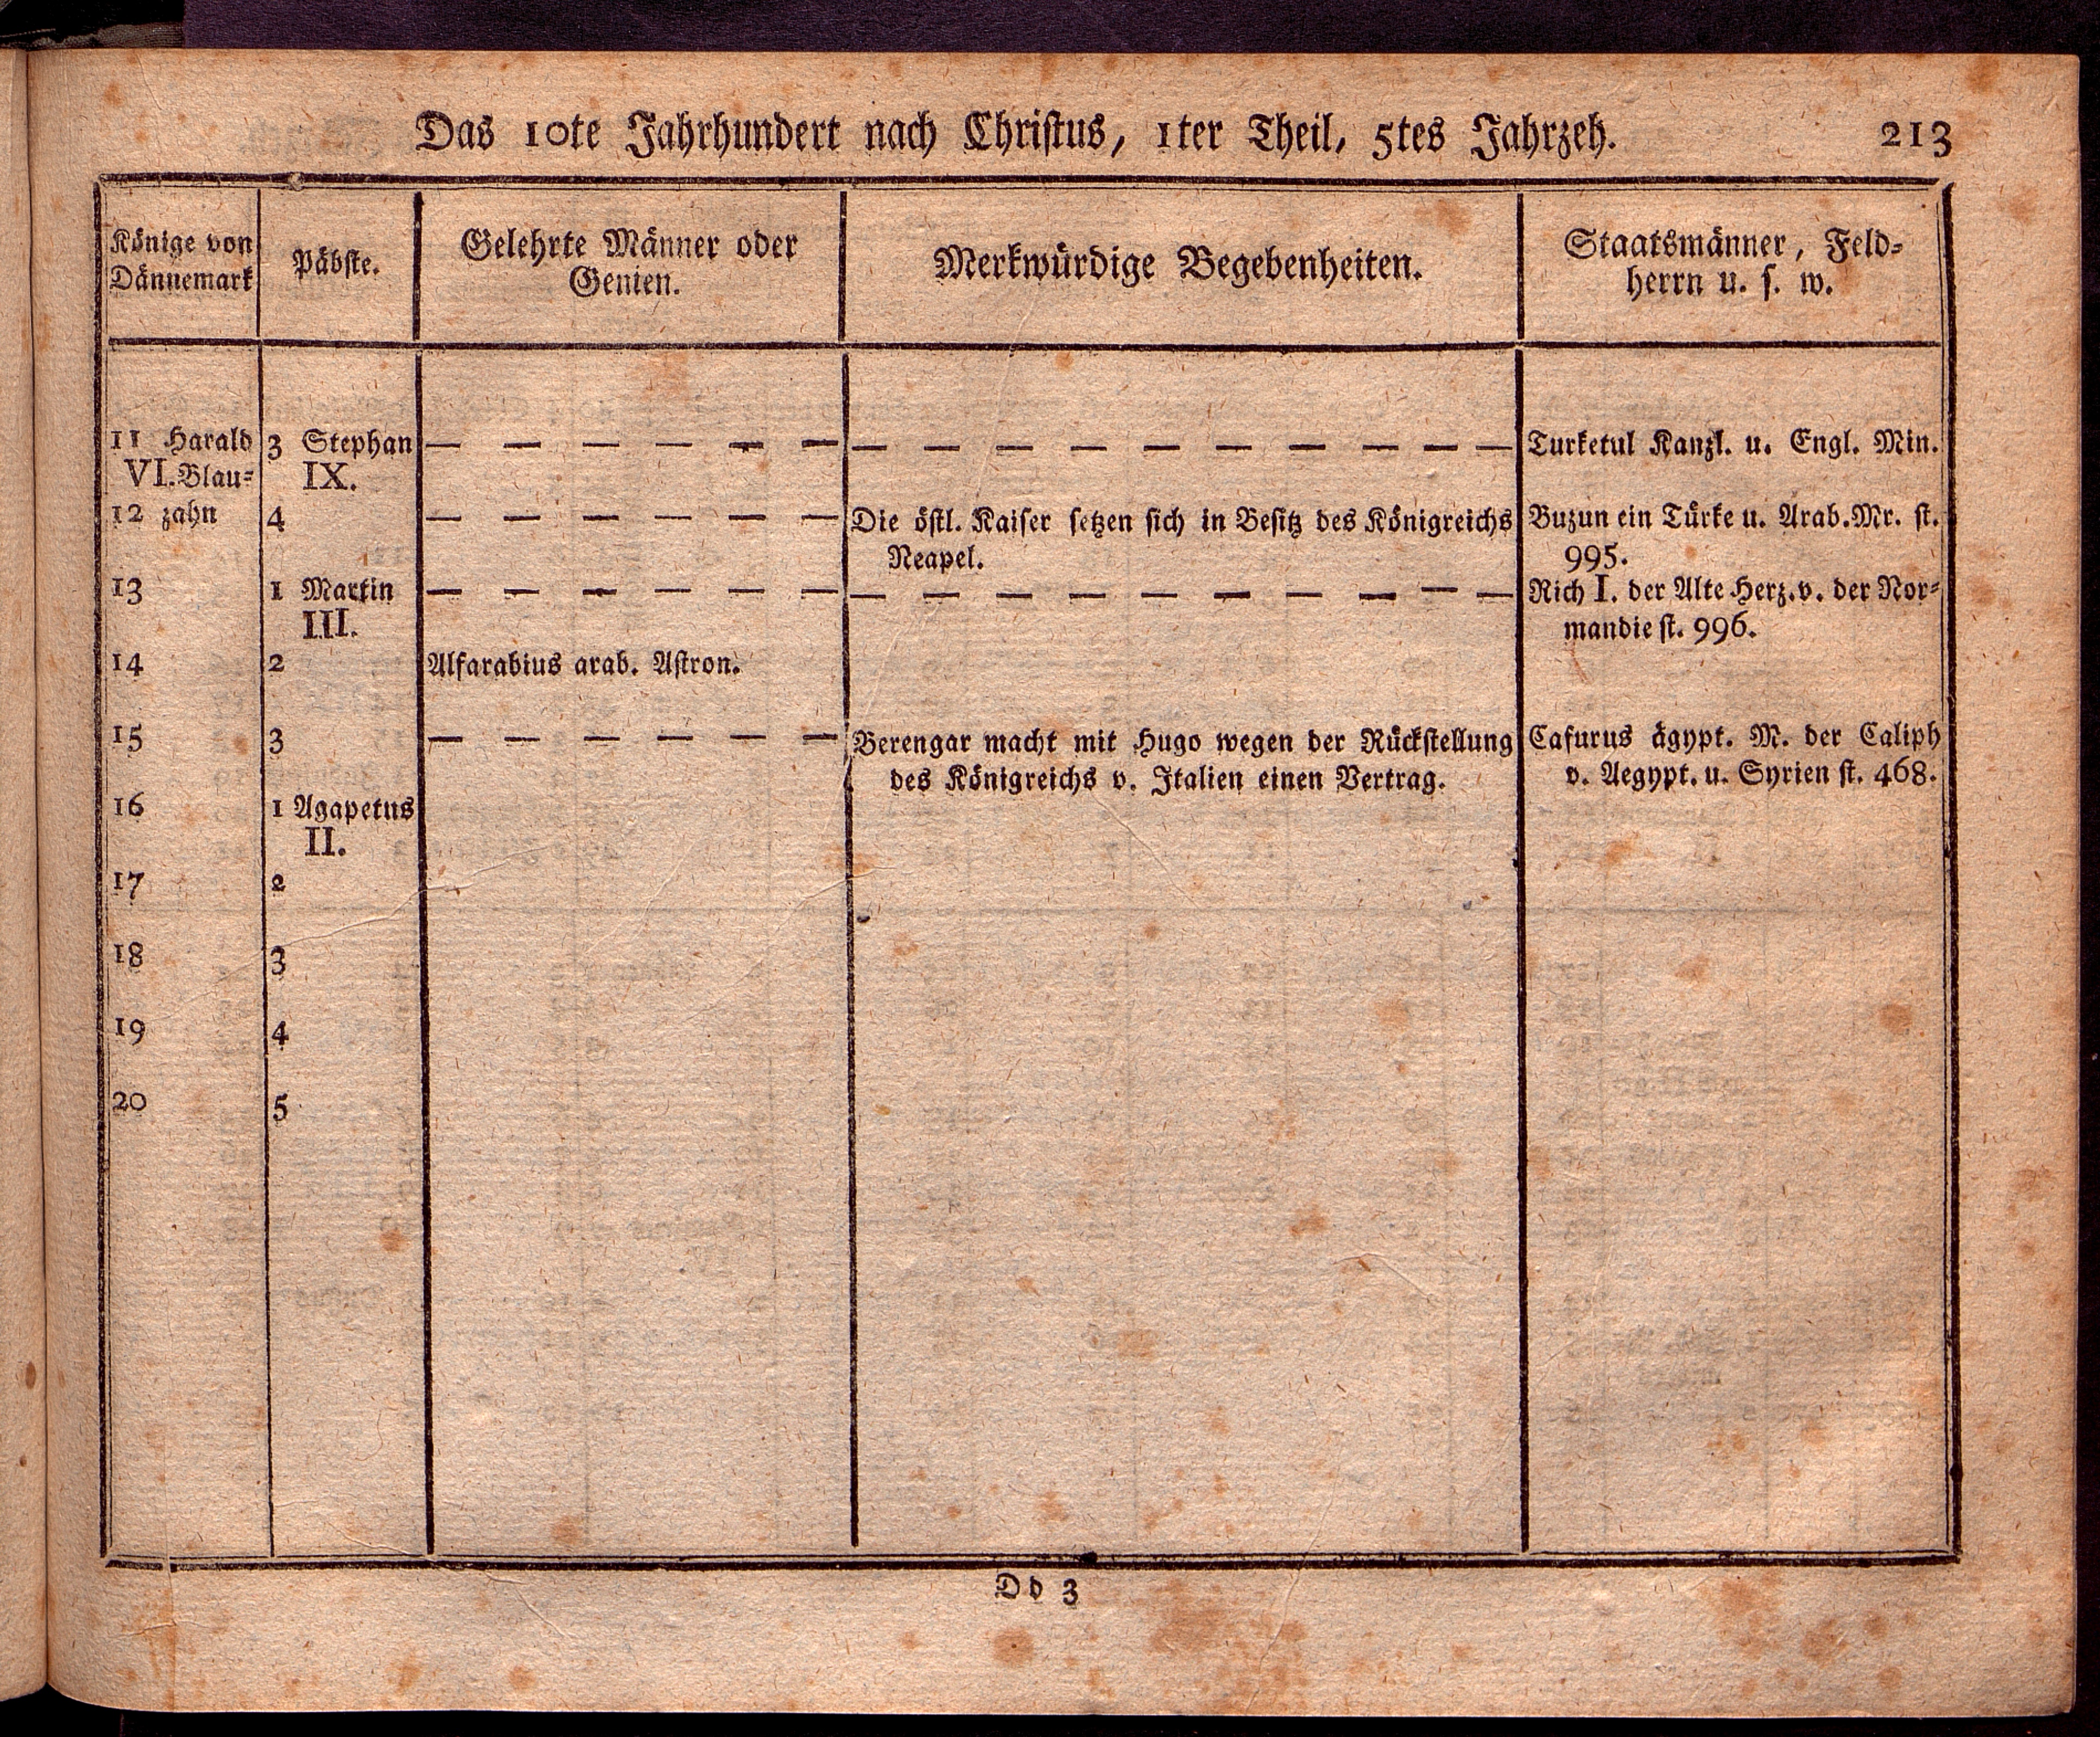 Das 10te Jahrhundert nach Christus, 1ter Theil, 5tes Jahrzeh. 213
Könige von
Dännemark
Päbste.
Gelehrte Männer oder
Genien.
Merkwürdige Begebenheiten.
Staatsmänner, Feld-
herrn u. s. w.
11 Harald 3 Stephan — — — — — — — — — — — — — — — Turketul Kanzl. u. Engl. Min.
VI. Blau- IX.
12 zahn 4 — — — — — — Die östl. Kaiser setzen sich in Besitz des Königreichs Buzun ein Türke u. Arab. Mr. st.
Neapel. 995.
13 1 Martin — — — — — — — — — — — — — — — Rich I. der Alte Herz. v. der Nor-
III. mandie st. 996.
14 2 Alfarabius arab. Astron.
15 3 — — — — — — Berengar macht mit Hugo wegen der Rückstellung Cafurus ägypt. M. der Caliph
des Königreichs v. Italien einen Vertrag. v. Aegypt. u. Syrien st. 468.
16 1 Agapetus
II.
17 2
18 3
19 4
20 5
Dd 3